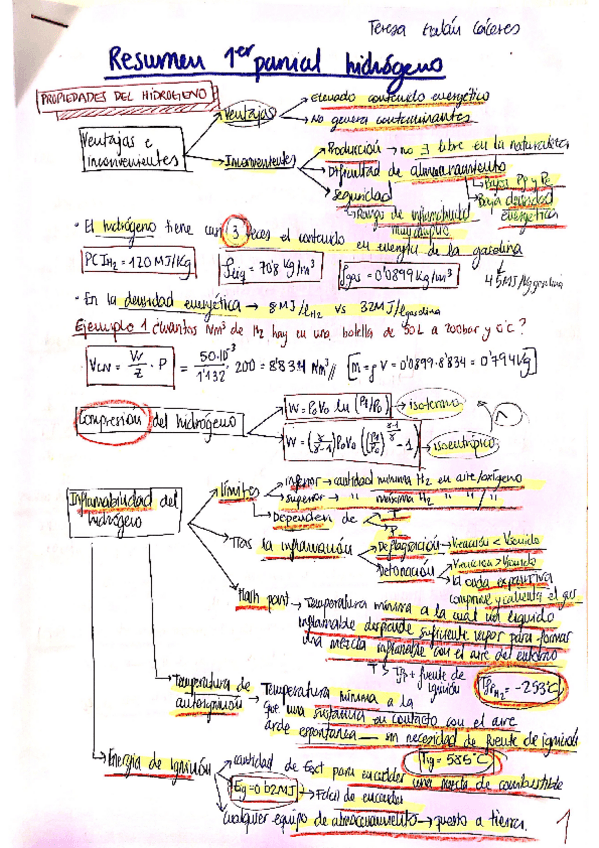 Teresa
Resumen 1er parcial hidrógeno
PROPIEDADES DEL HIDRÓGENO
Ventajas e inconvenientes
Ventajas → Elevado contenido energético
→ No genera contaminantes
Inconvenientes → Producción → no ∃ libre en la naturaleza
→ Dificultad de almacenamiento
→ Bajos Pf y Pe
→ Baja densidad energética
→ Seguridad
→ Rango de inflamabilidad muy amplio
· El hidrógeno tiene casi 3 veces el contenido en energía de la gasolina
PCI H2 = 120 MJ/Kg
ρliq = 70'8 Kg/m³
ρgas = 0'0899 Kg/m³
45 MJ/Kg gasolina
· En la densidad energética → 8 MJ/lH2 vs 32 MJ/l gasolina
Ejemplo 1 ¿Cuántos Nm³ de H2 hay en una botella de 50 L a 200 bar y 0°C?
VCN = V/z · P = 50·10⁻³/1'132 · 200 = 8'834 Nm³ // [m = ρ V = 0'0899 · 8'834 = 0'794 Kg]
Compresión del hidrógeno
W = P0V0 ln (Pf/P0) → isotermo
W = (γ/γ-1) P0V0 ((Pf/P0)^(γ-1/γ) - 1) → isoentrópico
Inflamabilidad del hidrógeno
límites → inferior → cantidad mínima H2 en aire/oxígeno
→ superior → " máxima H2 " " / "
→ Dependen de → T
→ P
→ Tras la inflamación → Deflagración → Vreacción < Vsonido
→ Detonación → Vreacción > Vsonido
→ la onda expansiva comprime y calienta el gas
→ Flash point → Temperatura mínima a la cual un líquido
inflamable desprende suficiente vapor para formar
una mezcla inflamable con el aire del entorno
T > Tfp + fuente de ignición
TfpH2 = -253°C
Temperatura de autoignición → Temperatura mínima a la
que una sustancia en contacto con el aire
arde espontánea — sin necesidad de fuente de ignición
Tig = 585°C
Energía de ignición → cantidad de Eext para encender una mezcla de combustible
Eig = 0'02 MJ → Fácil de encender
Cualquier equipo de almacenamiento → puesto a tierra.
1